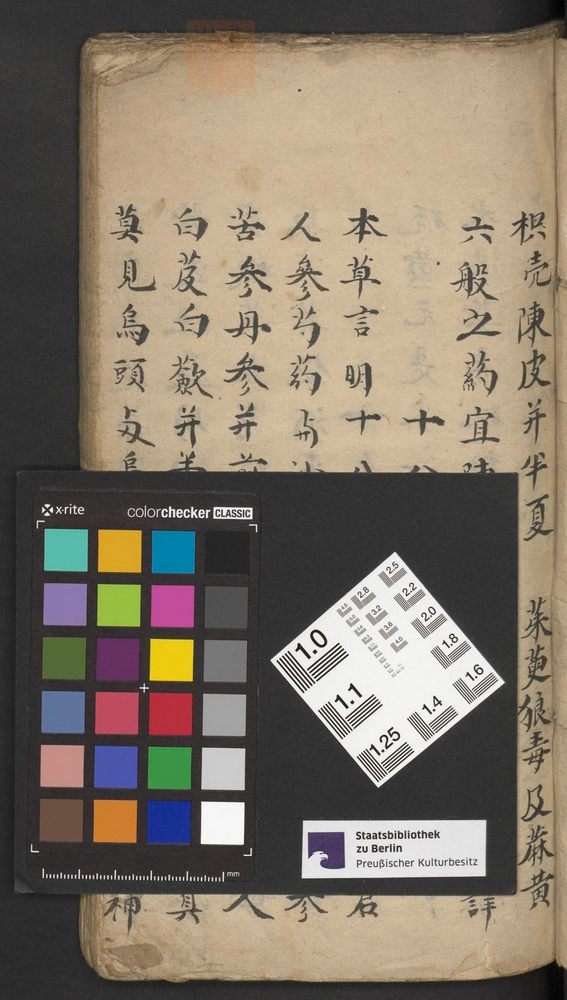 枳壳陳皮并半夏 茱萸狼毒及蔴黃
六般之藥宜陳
十八
本草言明十八
人參芍药与沙
苦參丹參并前
白芨白蘞并
莫見烏頭与烏 神
x-rite colorchecker CLASSIC
mm
2.5
2.8
2.2
3.2
2.0
3.6
1.8
4.0
1.0
1.6
1.1
1.4
1.25
Staatsbibliothek
zu Berlin
Preußischer Kulturbesitz